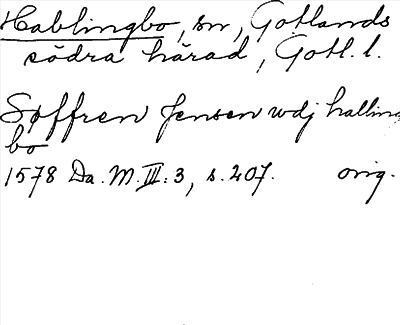 Hablingbo, sn, Gotlands
södra härad, Gotl. l.
Søffren Jensen wdj halling
bo
1578 Da. M. III: 3, s. 207. orig.